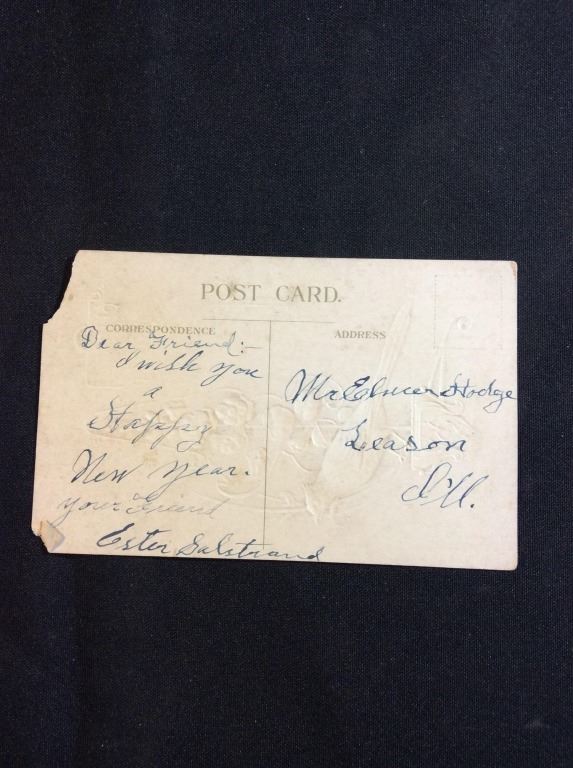 POST CARD.
CORRESPONDENCE
Dear Friend:-
I wish you
a
Happy
New Year.
your Friend
Ester Galstrand
ADDRESS
Mr Elmer Hodge
Leason
Ill.